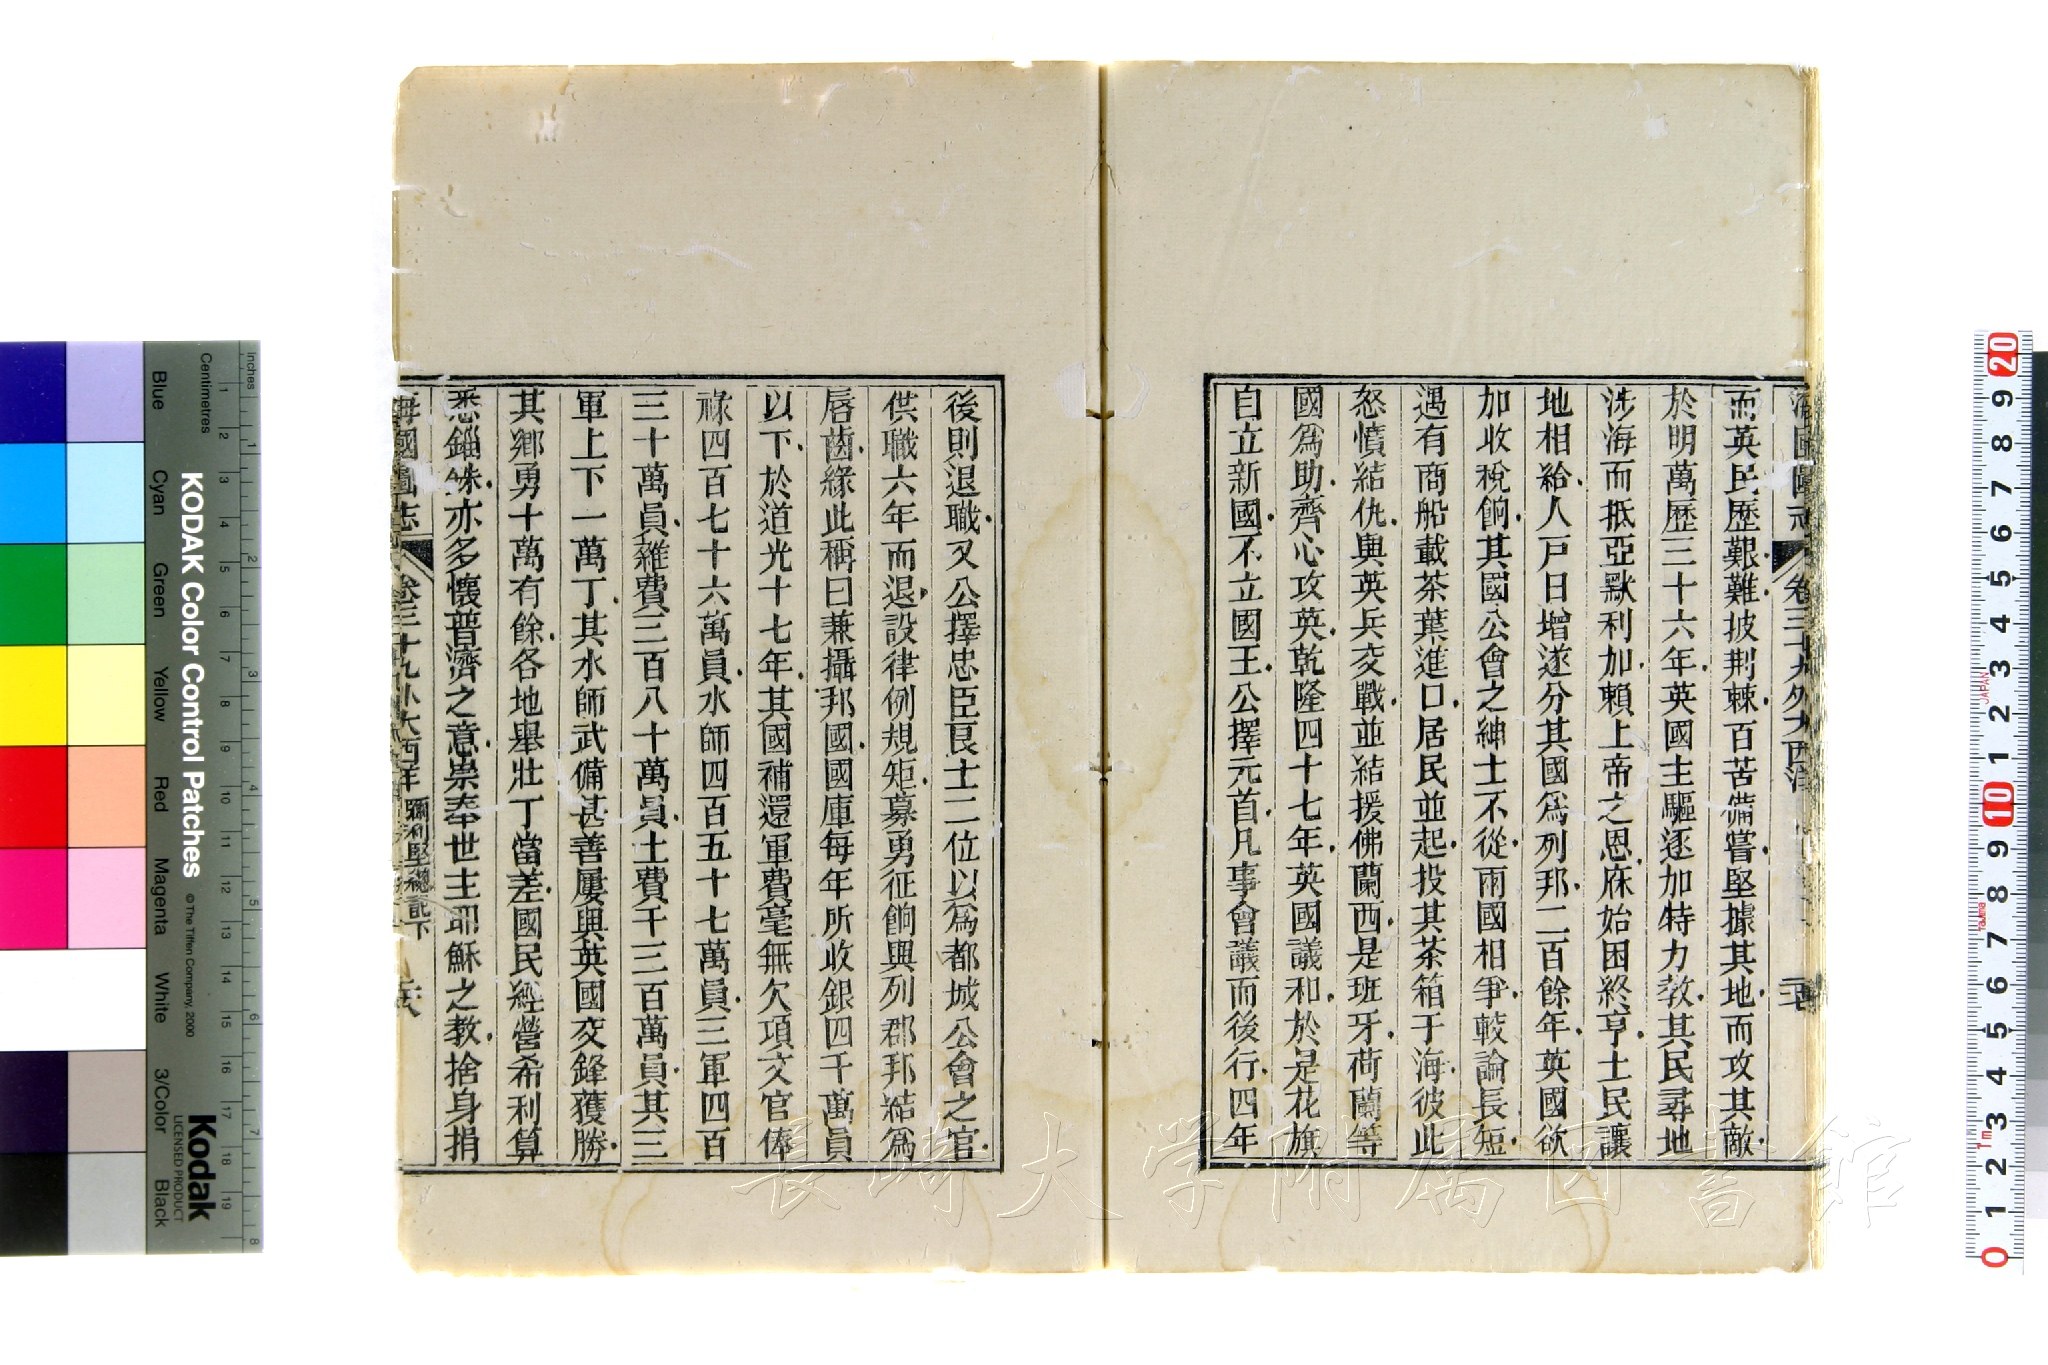 海國圖志 卷三十九外大西洋
而英民歷艱難披荆棘百苦備嘗堅據其地而攻其敵
於明萬歷三十六年英國主驅逐加特力敎其民尋地
涉海而抵亞默利加賴上帝之恩庥始困終亨土民讓
地相給人戸日增遂分其國爲列邦二百餘年英國欲
加收稅餉其國公會之紳士不從兩國相爭較論長短
遇有商船載茶葉進口居民並起投其茶箱于海彼此
怒憤結仇與英兵交戰並結援佛蘭西是班牙荷蘭等
國爲助齊心攻英乾隆四十七年英國議和於是花旗
自立新國不立國王公擇元首凡事會議而後行四年
後則退職又公擇忠臣良士二位以爲都城公會之官
供職六年而退設律例規矩募勇征餉與列郡邦結爲
唇齒緣此稱曰兼攝邦國國庫每年所收銀四千萬員
以下於道光十七年其國補還軍費毫無欠項文官俸
祿四百七十六萬員水師四百五十七萬員三軍四百
三十萬員雜費三百八十萬員土費千三百萬員其三
軍上下一萬丁其水師武備甚善屢與英國交鋒獲勝
其鄉勇十萬有餘各地舉壯丁當差國民經營希利算
悉錙銖亦多懷普濟之意崇奉世主耶穌之教捨身捐
海國圖志 卷三十九外大西洋 彌利堅總記下
KODAK Color Control Patches
© The Tiffen Company, 2000
Kodak
LICENSED PRODUCT
Inches
Centimetres
Blue
Cyan
Green
Yellow
Red
Magenta
White
3/Color
Black
1 2 3 4 5 6 7 8 9 10 11 12 13 14 15 16 17 18 19
1 2 3 4 5 6 7 8
20 9 8 7 6 5 4 3 2 1 10 9 8 7 6 5 4 3 2 1 0
JAPAN
長崎大学附属図書館